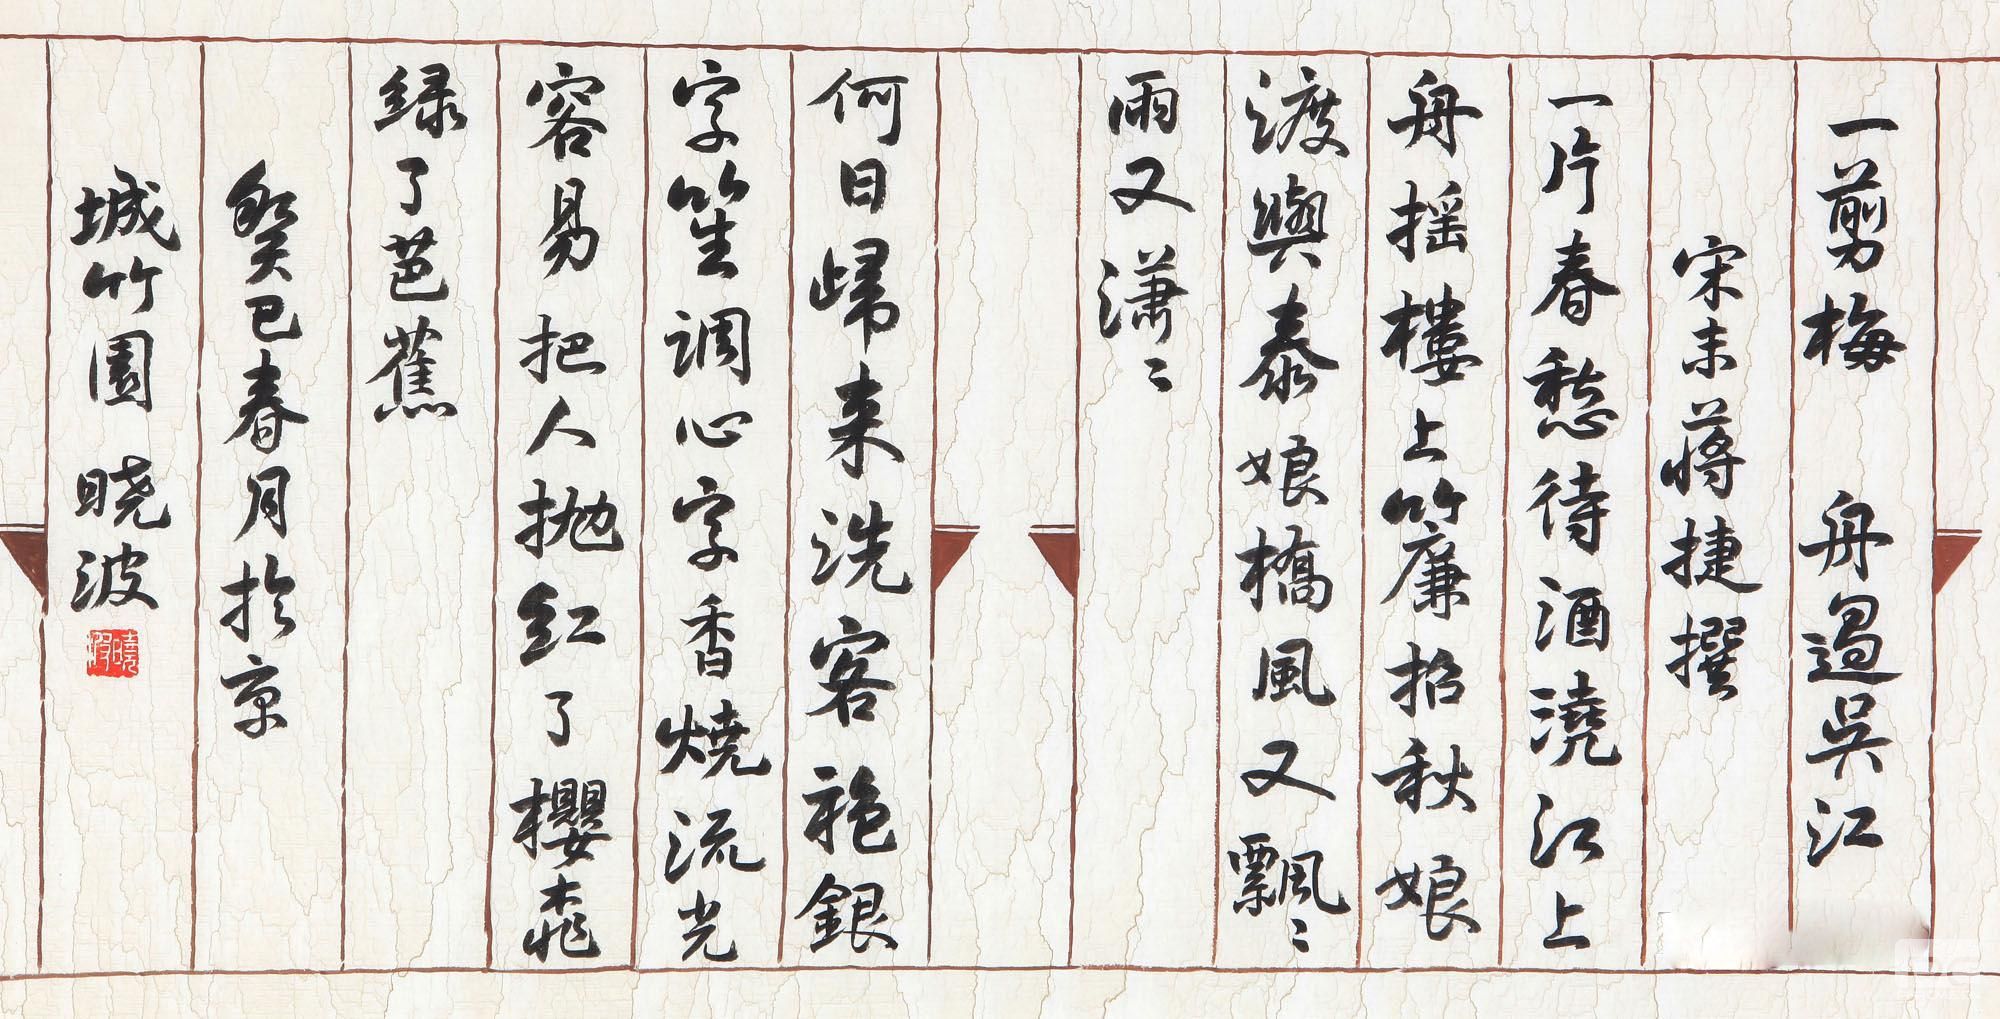 一剪梅 舟過吳江
宋末蔣捷撰
一片春愁待酒澆江上
舟摇樓上簾招秋娘
渡與泰娘橋風又飄〻
雨又潇〻
何日歸来洗客袍銀
字笙調心字香燒流光
容易把人抛紅了櫻桃
緑了芭蕉
癸巳春月於京
城竹園 晓波